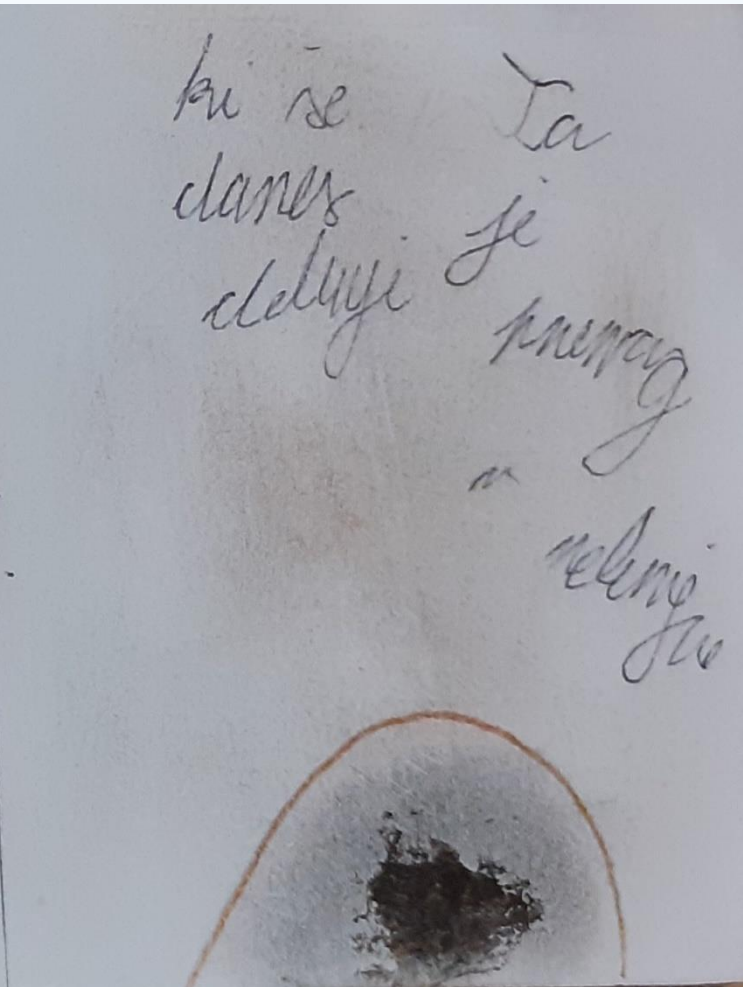 ki še
danes
deluje
Ta
je
premog
v
velenju